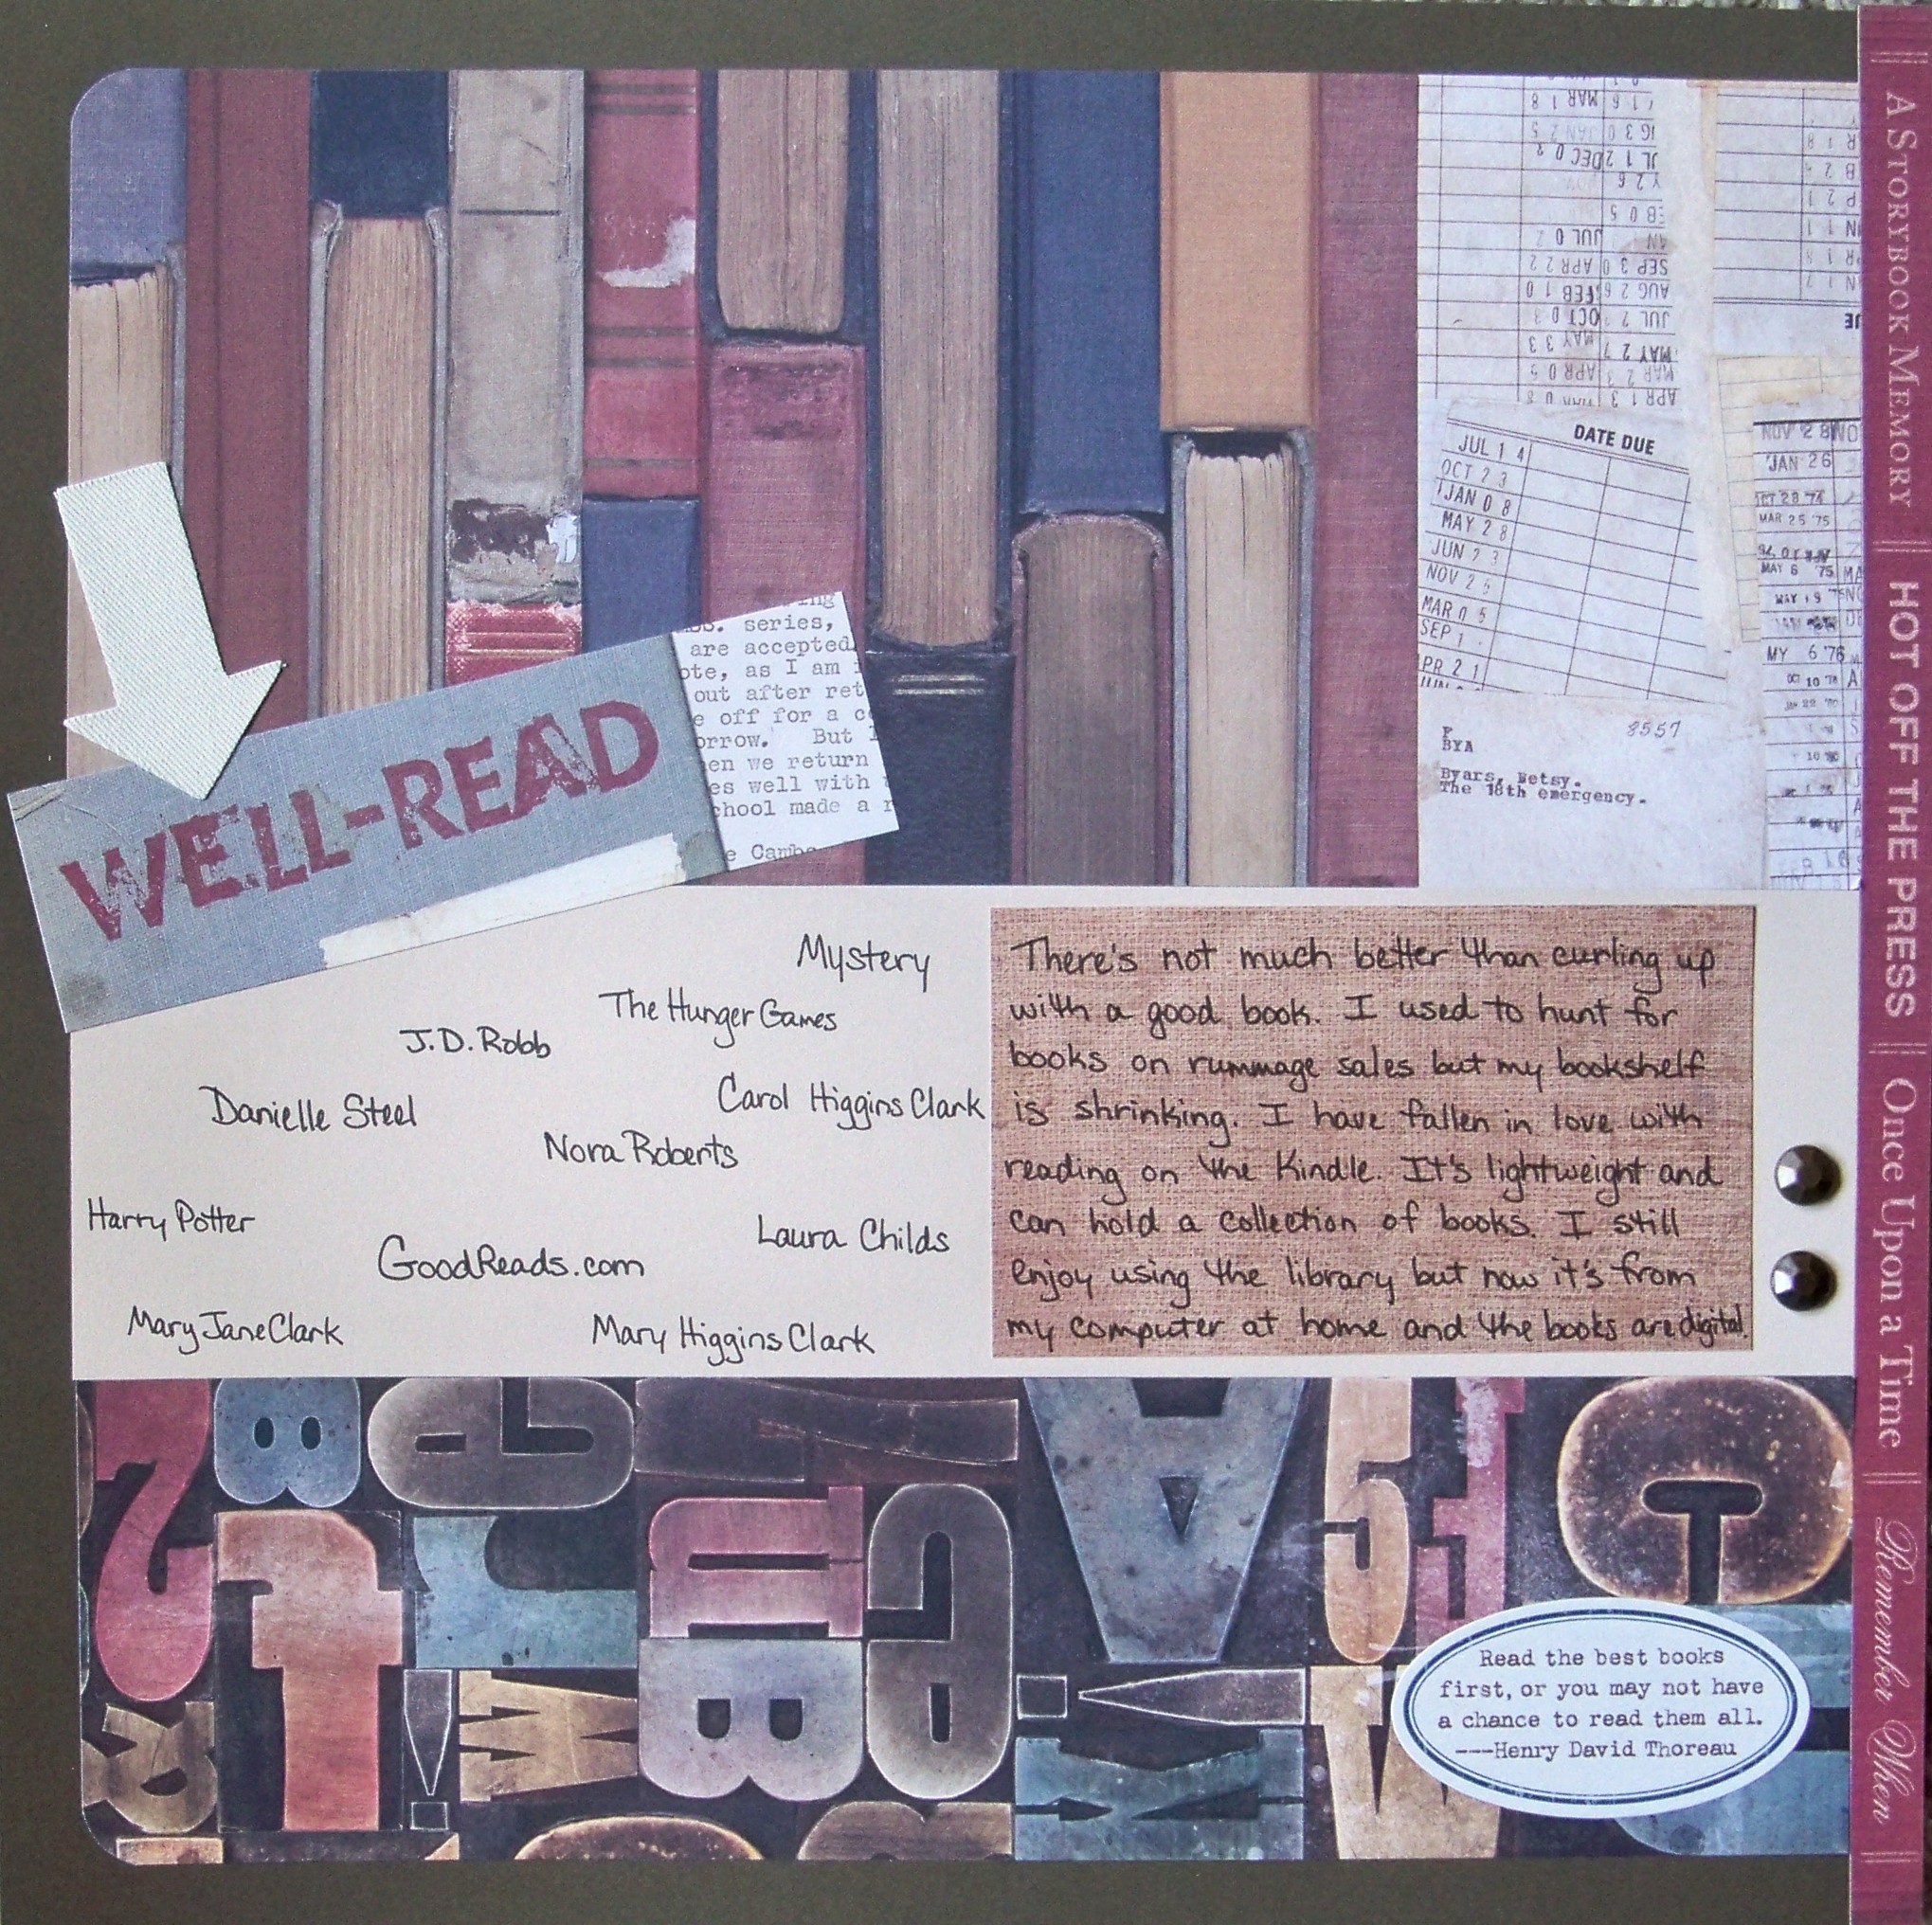 DATE DUE
JUL 1 4
OCT 2 3
JAN 0 8
MAY 2 8
JUN 2 3
NOV 2
MAR 0 5
SEP 1
APR 2 1
JAN 26
OCT 28 '74
MAR 25 '75
MAY 6 '75
MY 6 '76
8557
F
BYA
Byars, Betsy.
The 18th emergency.
MAR 1 8
DEC 0
JUL 0
SEP 3 0 APR 2 2
AUG 2 6 FEB 1 0
JUL 7 OCT 0 3
MAY 2 7 MAY 3 3
APR 0 5
APR 1 3
series,
are accepted
ote, as I am
out after ret
e off for a c
orrow. But
en we return
es well with
chool made a r
WELL-READ
Mystery
The Hunger Games
J.D. Robb
Danielle Steel
Carol Higgins Clark
Nora Roberts
Harry Potter
Laura Childs
GoodReads.com
Mary Jane Clark
Mary Higgins Clark
There's not much better than curling up
with a good book. I used to hunt for
books on rummage sales but my bookshelf
is shrinking. I have fallen in love with
reading on the Kindle. It's lightweight and
can hold a collection of books. I still
enjoy using the library but now it's from
my computer at home and the books are digital.
Read the best books
first, or you may not have
a chance to read them all.
---Henry David Thoreau
A STORYBOOK MEMORY || HOT OFF THE PRESS || Once Upon a Time || Remember When